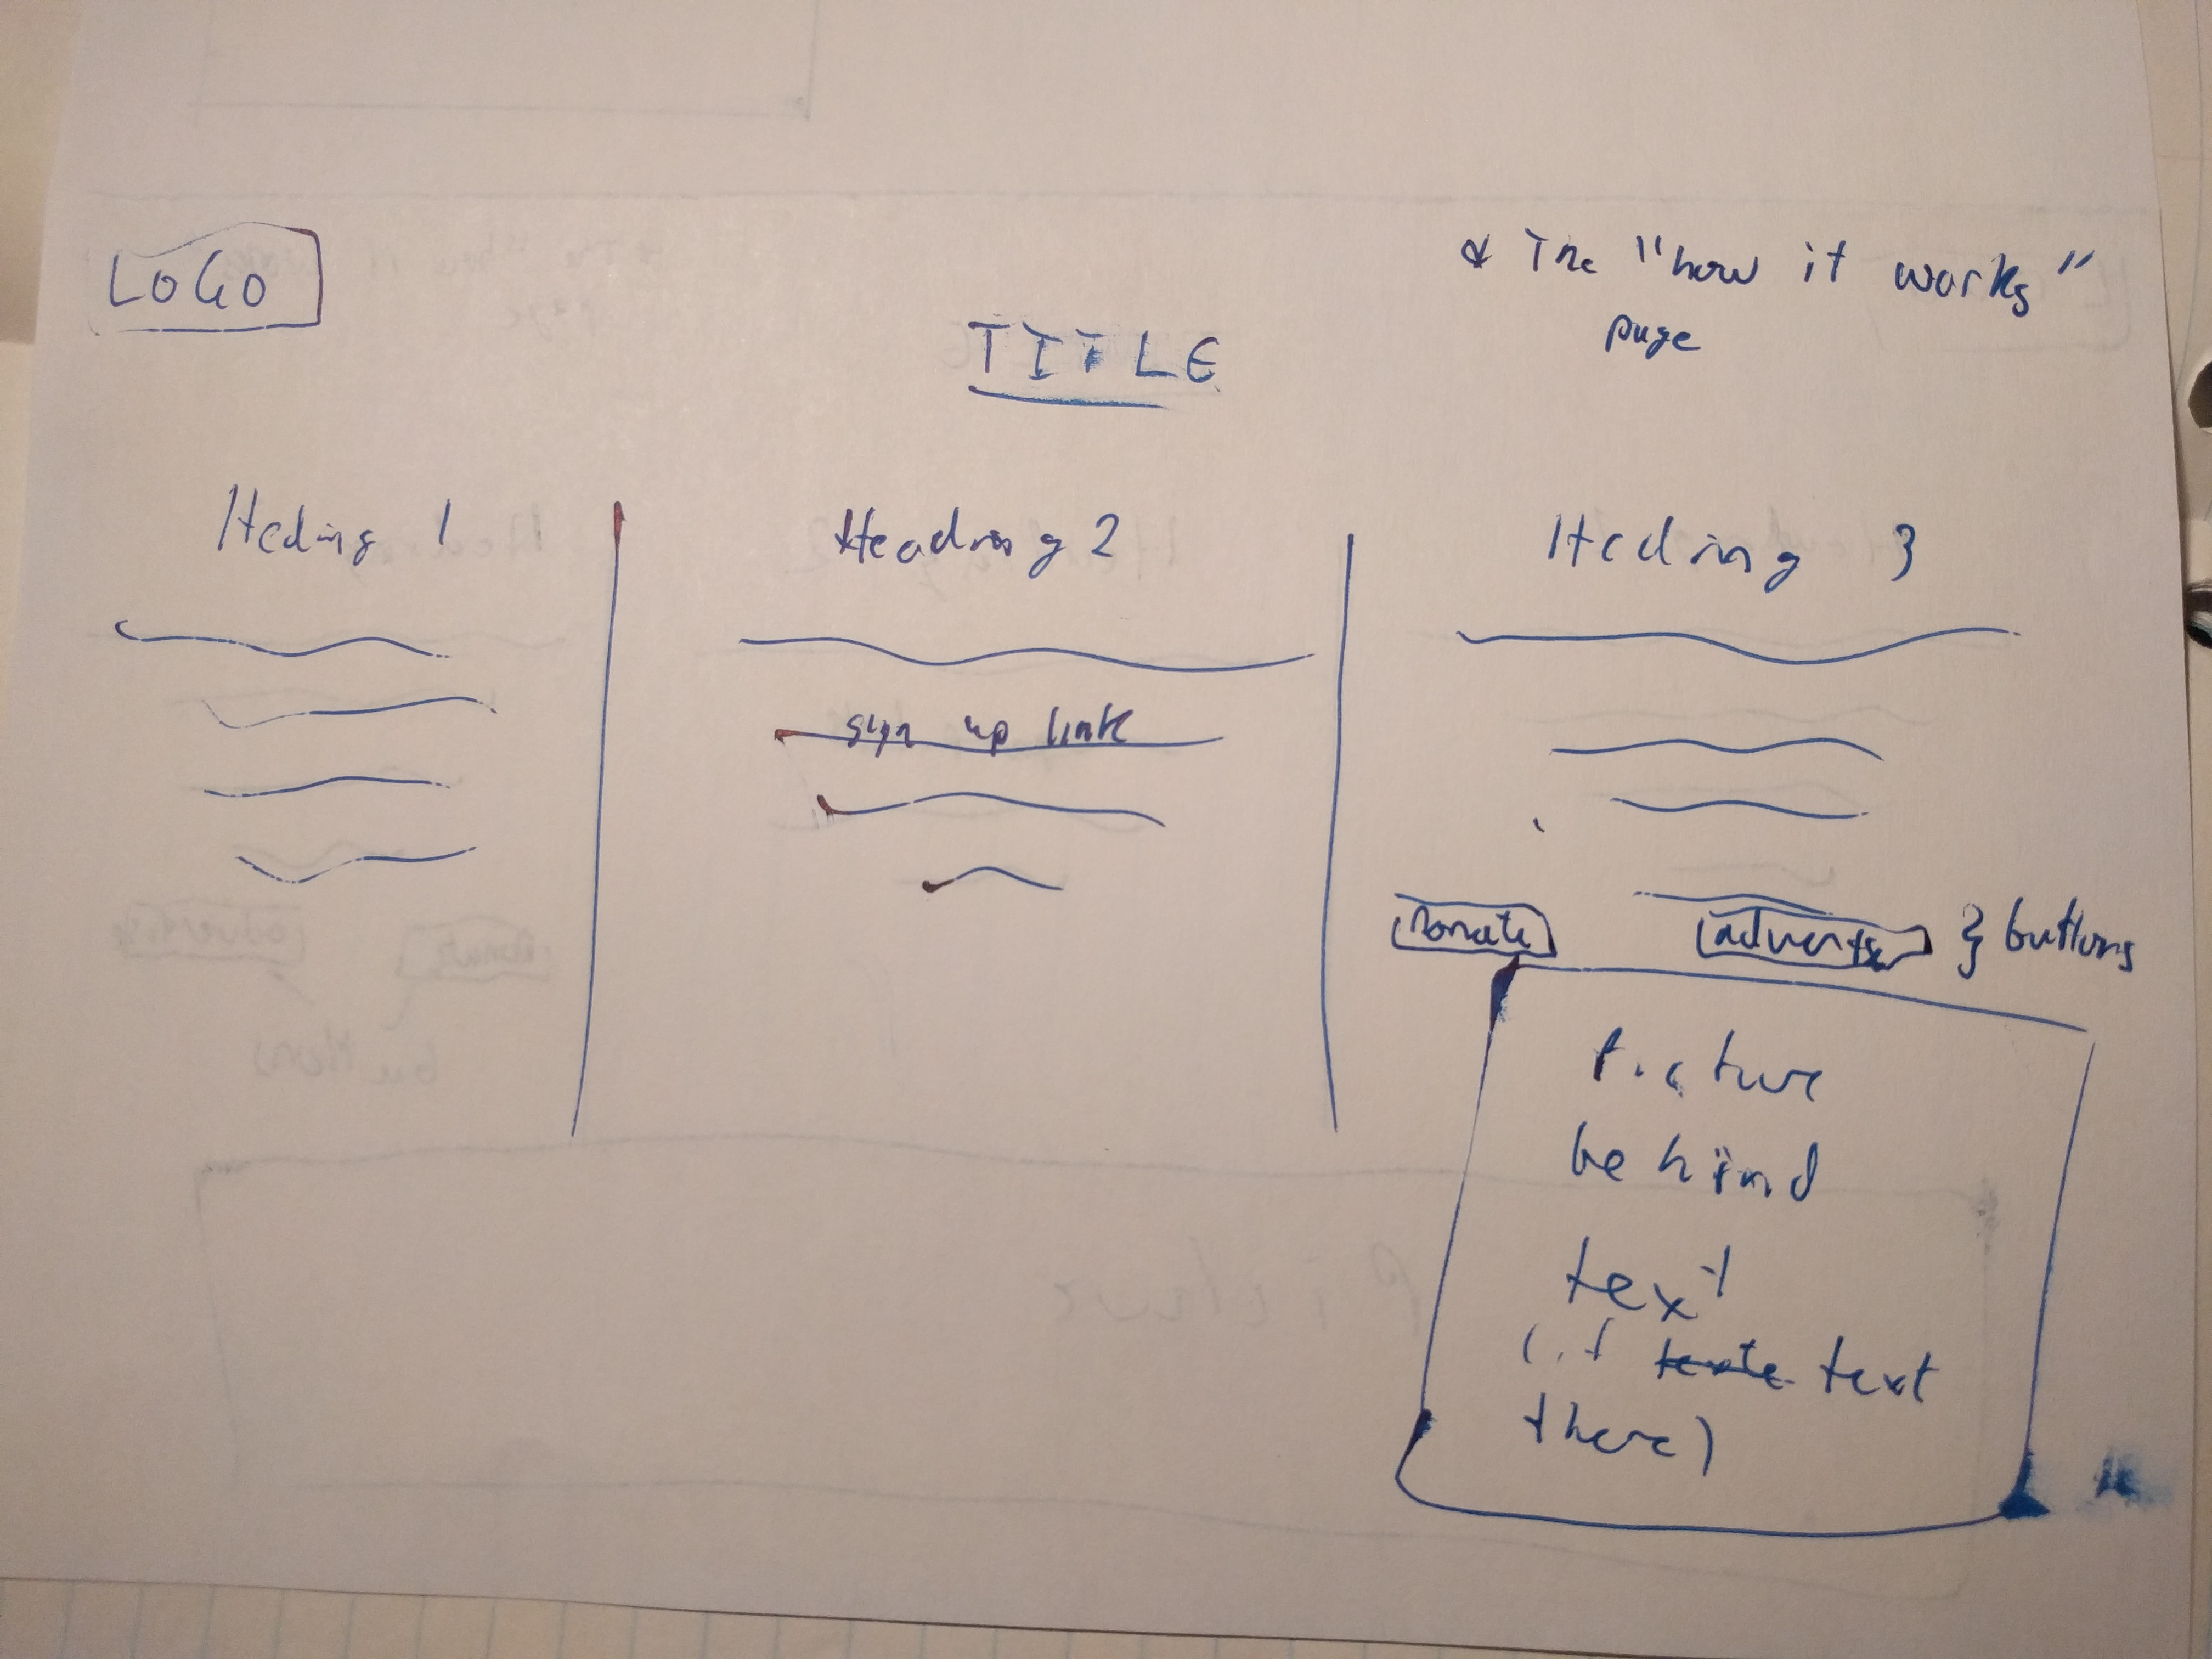 LOGO
* The "how it works"
page
TITLE
Heding 1
Heading 2
Heding 3
sign up link
Donate
advertise
} buttons
Picture
behind
text
(if text
there)